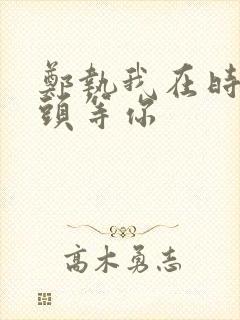 鄭執我在時
頭等你
高木勇志